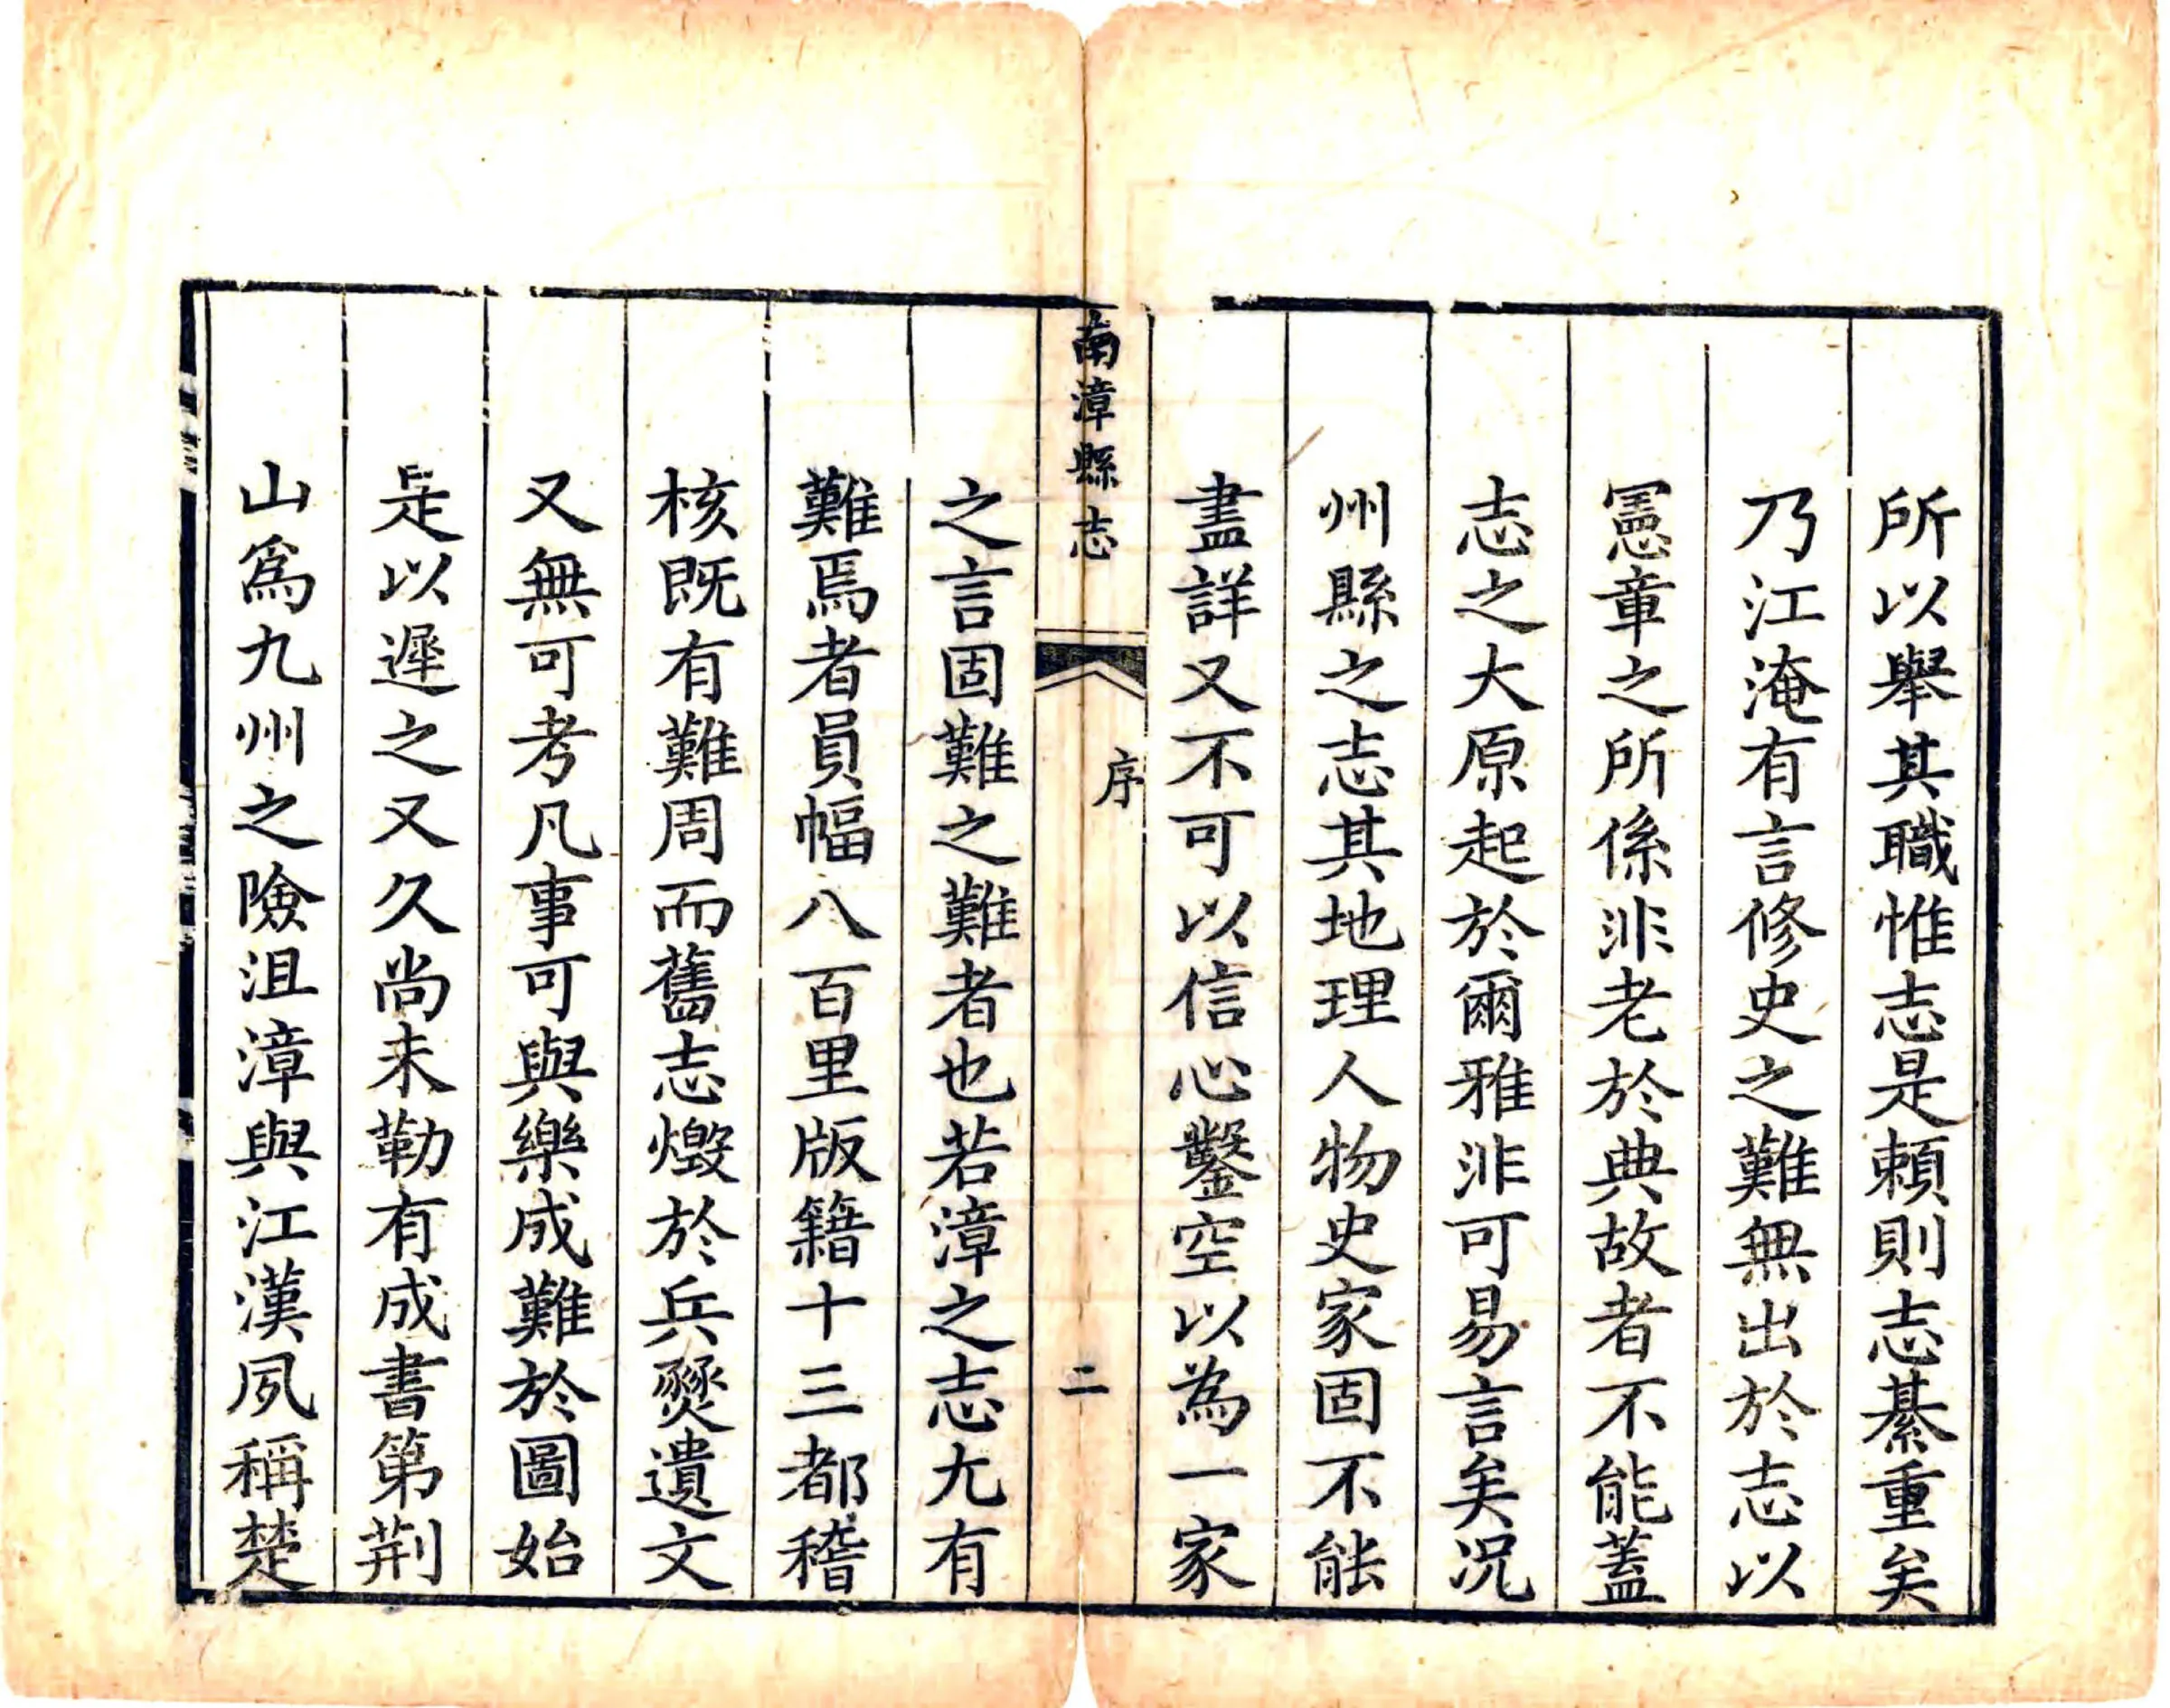 所以舉其職惟志是賴則志綦重矣
乃江淹有言修史之難無出於志以
憲章之所係非老於典故者不能蓋
志之大原起於爾雅非可易言矣况
州縣之志其地理人物史家固不能
盡詳又不可以信心鑿空以為一家
南漳縣志
序
二
之言固難之難者也若漳之志尤有
難焉者員幅八百里版籍十三都稽
核既有難周而舊志燬於兵燹遺文
又無可考凡事可與樂成難於圖始
是以遲之又久尚未勒有成書第荆
山爲九州之險沮漳與江漢夙稱楚